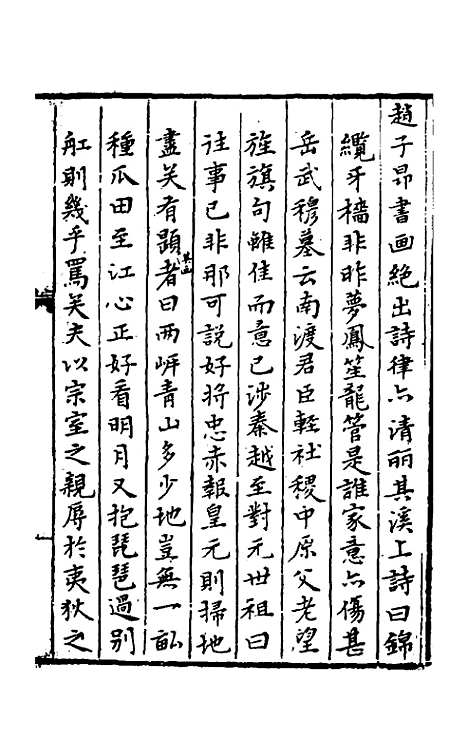 趙子昂書画絶出詩律亦清丽其溪上詩曰錦
纜牙檣非昨夢鳳笙龍管是誰家意亦傷甚
岳武穆墓云南渡君臣輕社稷中原父老望
旌旗句雖佳而意已涉秦越至對元世祖曰
徃事已非那可說好将忠赤報皇元則掃地
盡矣有題者其画曰两岍青山多少地豈無一畝
種瓜田至江心正好看明月又抱琵琶過别
舡則幾乎罵矣夫以宗室之親辱於夷狄之